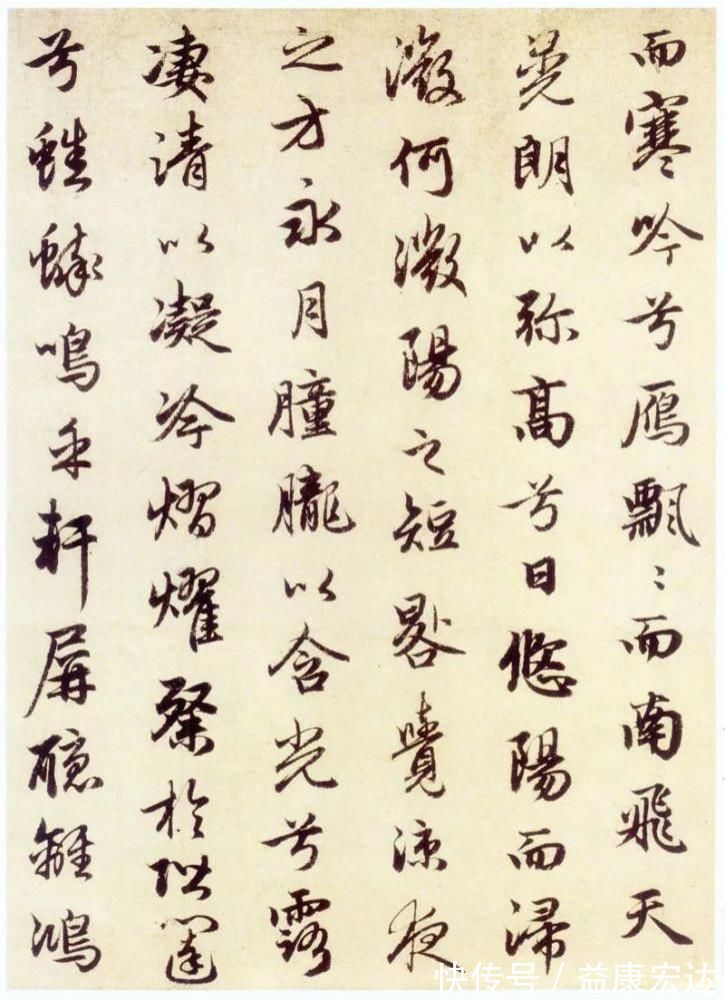 而寒吟兮鴈飄〻而南飛天
晃朗以弥高兮日悠陽而浸
微何微陽之短晷覺涼夜
之方永月朣朧以含光兮露
凄清以凝冷熠燿粲於階闥
兮蟋蟀鳴乎軒屏聽離鴻
快传号 / 益康宏达